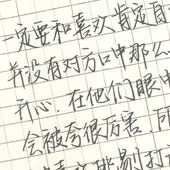 一定要和喜欢肯定自
并没有对方口中那么
开心.在他们眼中
会被夸很厉害.所
挑剔打